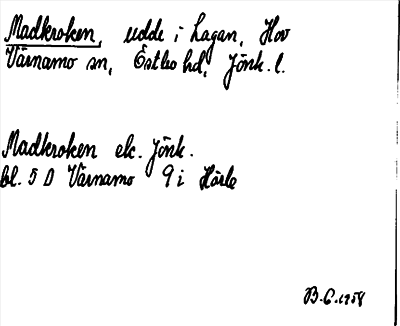 Madkroken, udde i Lagan, Hov
Värnamo sn, Östbo hd, Jönk. l.
Madkroken ek. Jönk.
bl. 5 D Värnamo 9 i Hörle
B.C. 1958